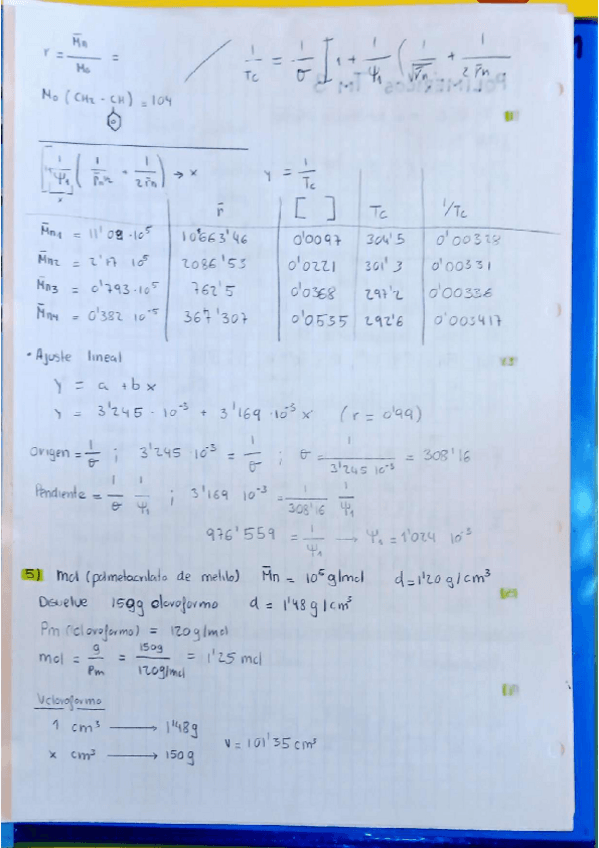 r = M̄n / Mo =
1/Tc = 1/θ [ 1 + 1/Ψ₁ ( 1/√r̄n + 1/2r̄n
Mo ( CH₂ - CH ) = 104
[ 1/Ψ₁ ( 1/r̄n^1/2 + 1/2r̄n ) → x      y = 1/Tc
x
r̄    [ ]    Tc    1/Tc
M̄n1 = 11'09 ·10⁵    10663'46    0'0097    304'5    0'00328
M̄n2 = 2'17 10⁵    2086'53    0'0221    301'3    0'00331
M̄n3 = 0'793·10⁵    762'5    0'0368    297'2    0'00336
M̄n4 = 0'382 10⁻⁵    367'307    0'0535    292'6    0'003417
· Ajuste lineal
Y = a + b x
Y = 3'245 · 10⁻³ + 3'169 ·10⁻³ x    (r = 0'99)
Origen = 1/θ ; 3'245 10⁻³ = 1/θ ; θ = 1 / 3'245 10⁻³ = 308'16
Pendiente = 1/θ 1/Ψ₁ ; 3'169 10⁻³ = 1/308'16 1/Ψ₁
976'559 = 1/Ψ₁ → Ψ₁ = 1'024 10⁻³
5) mol (polimetacrilato de metilo) M̄n = 10⁵ g/mol    d = 1'20 g/cm³
Disuelve 150g cloroformo    d = 1'48 g/cm³
Pm (cloroformo) = 120 g/mol
mol = g/Pm = 150g / 120g/mol = 1'25 mol
Vcloroformo
1 cm³ → 1'48g
x cm³ → 150g    V = 101'35 cm³